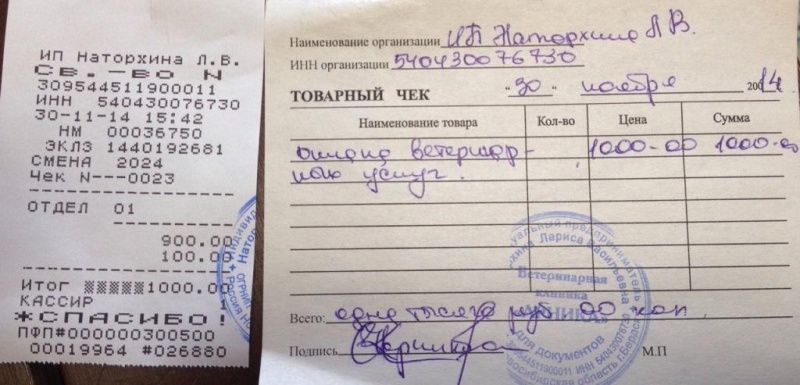 ИП Наторхина Л.В.
СВ.-ВО N
309544511900011
ИНН 540430076730
30-11-14 15:42
НМ 00036750
ЭКЛЗ 1440192681
СМЕНА 2024
Чек N---0023
ОТДЕЛ 01
900.00
100.00
Итог ▒▒▒▒▒1000.00
КАССИР 1
*СПАСИБО!
ПФП#000000300500
00019964 #026880
Наименование организации ИП Наторхина Л В.
ИНН организации 540430076730
ТОВАРНЫЙ ЧЕК "30" ноября 2014
Наименование товара Кол-во Цена Сумма
оплата ветеринар- 1000-00 1000-00
ных услуг.
Всего: одна тысяча руб 00 коп
Подпись М.П
Наторхина Лариса Васильевна
Ветеринарная
клиника
Для документов
309544511900011 ИНН 540430076730